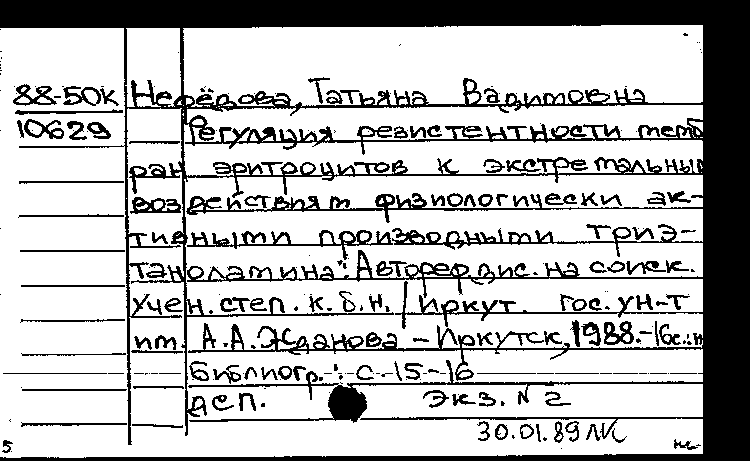 88-50К Нефёдова, Татьяна Вадимовна
10629 Регуляция резистентности мемб
ран эритроцитов к экстремальным
воздействиям физиологически ак-
тивными производными триэ-
таноламина: Автореф. дис. на соиск.
учен. степ. к. б. н. / Иркут. гос. ун-т
им. А.А. Жданова - Иркутск, 1988.-16с.:и
Библиогр.: с. 15-16
ДСП. Экз. N 2
30.01.89
5